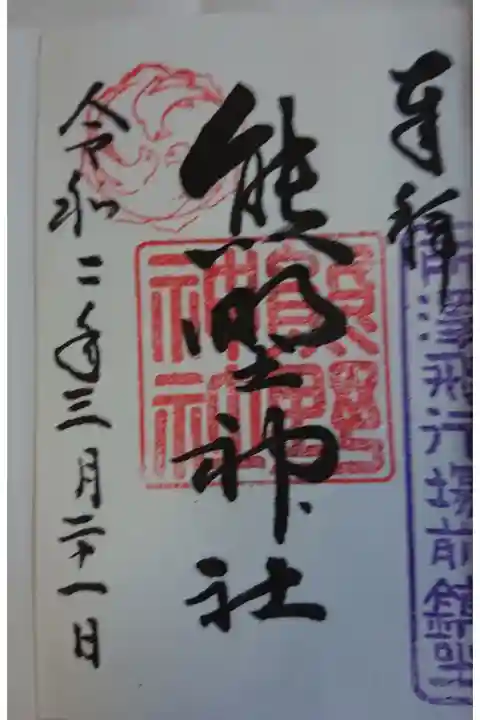 奉拝
所澤飛行場前鎮座
熊野神社
熊野神社
令和二年三月二十一日